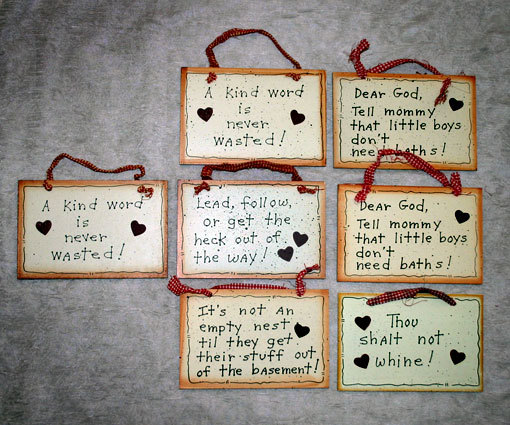 A kind word
is
never
wasted!
Dear God,
Tell mommy
that little boys
don't
need baths!
A kind word
is
never
wasted!
Lead, follow,
or get the
heck out of
the way!
Dear God,
Tell mommy
that little boys
don't
need baths!
It's not an
empty nest
til they get
their stuff out
of the basement!
Thou
shalt not
whine!